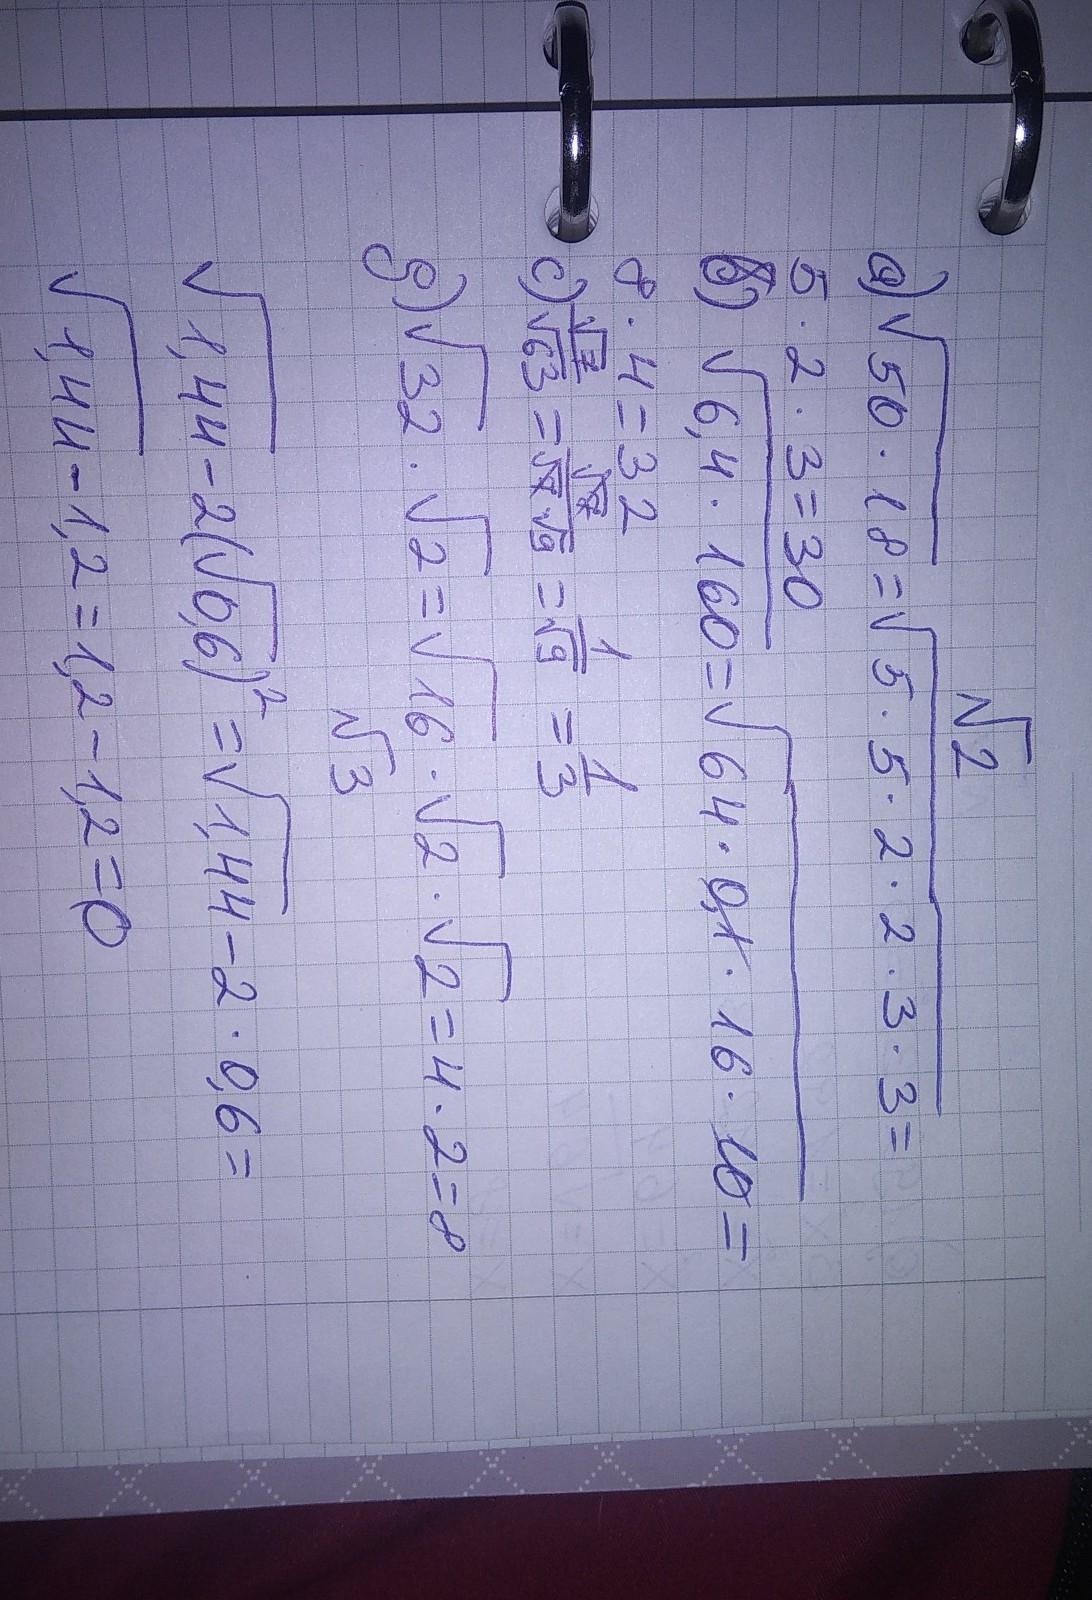 √2
а) √50 · 18 = √5 · 5 · 2 · 2 · 3 · 3 =
5 · 2 · 3 = 30
б) √6,4 · 160 = √64 · 0,1 · 16 · 10 =
8 · 4 = 32
с) √7/√63 = √7/√7√9 = 1/√9 = 1/3
д) √32 · √2 = √16 · √2 · √2 = 4 · 2 = 8
√3
√1,44 - 2(√0,6)² = √1,44 - 2 · 0,6 =
√1,44 - 1,2 = 1,2 - 1,2 = 0